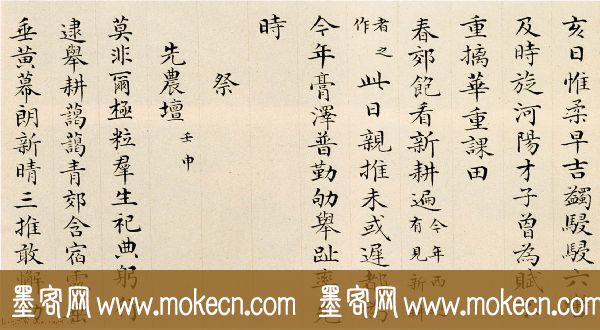 亥日惟柔早吉蠲駸駸六
及時旋河陽才子曾為賦
重摛華重課田
春郊飽看新耕遍今年西
有見新
者之
作此日親推未或遲都
今年膏澤普勤劬舉趾率先
時
祭
先農壇壬申
莫非爾極粒羣生祀典躬
逮舉耕藹藹青郊含宿
垂黄幕朗新晴三推敢懈
墨客网 www.mokecn.com 墨客网 www.mokecn.com